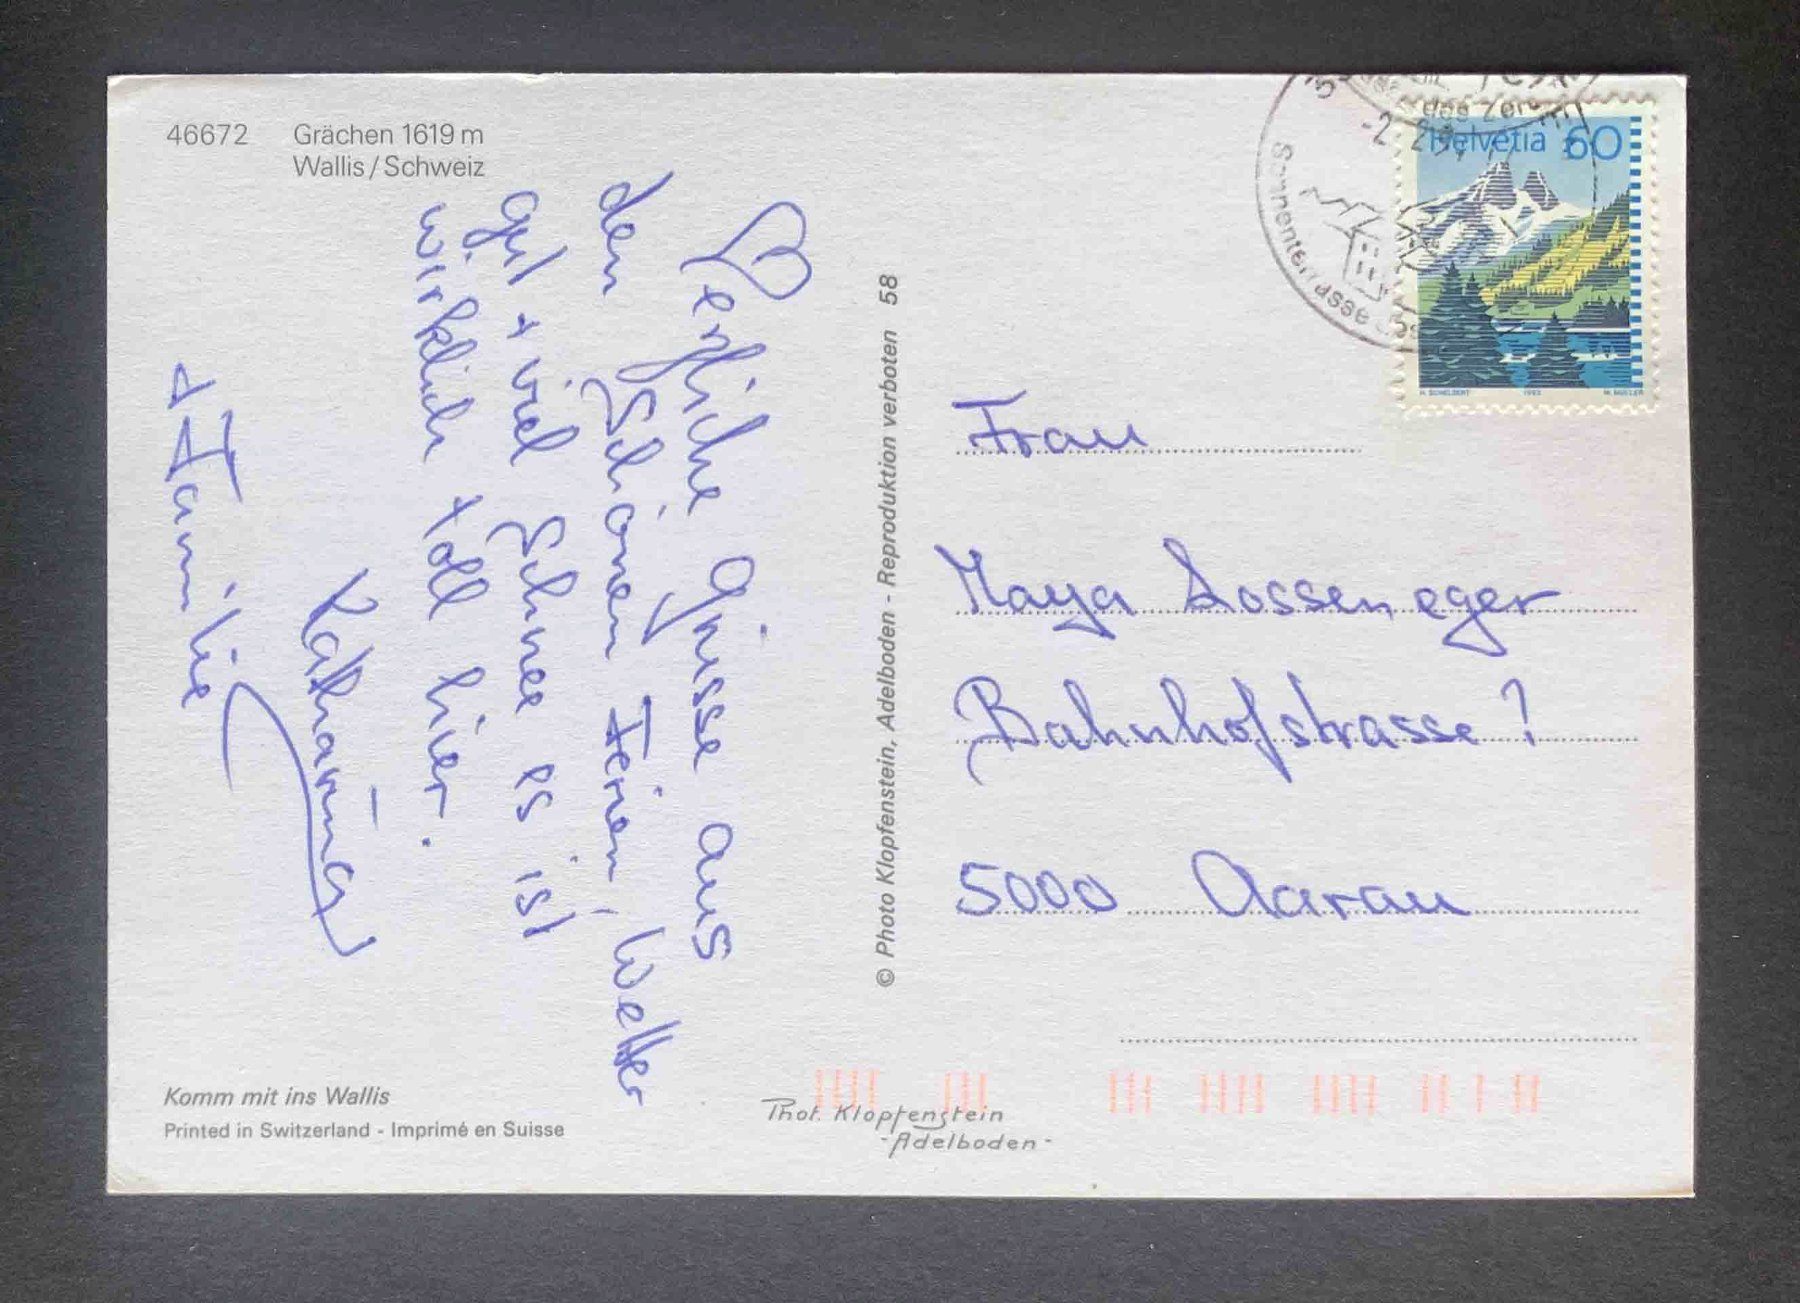 46672 Grächen 1619 m
Wallis / Schweiz
Herzliche Grüsse aus
den Schönen Ferien, Wetter
gut + viel Schnee es ist
wirklich toll hier.
Katharina
+ Familie
Komm mit ins Wallis
Printed in Switzerland - Imprimé en Suisse
© Photo Klopfenstein, Adelboden - Reproduktion verboten 58
Phot. Klopfenstein
- Adelboden -
Helvetia 60
H. SCHELBERT 1993 M. MÜLLER
Sonnenterrasse
Frau
Maya Dossenegger
Bahnhofstrasse 1
5000 Aarau